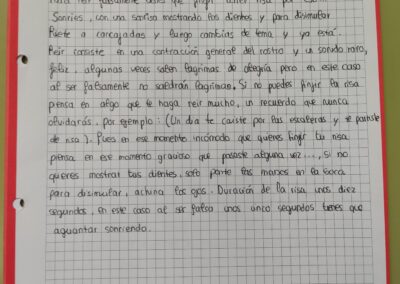 Para reír falsamente tienes que fingir tener risa por ese...
Sonríes, con una sonrisa mostrando los dientes y para disimular
Ríete a carcajadas y luego cambias de tema y ya está.
Reír consiste en una contracción general del rostro y un sonido raro,
feliz, algunas veces salen lagrimas de alegría pero en este caso
al ser falsamente no saldrán lagrimas. Si no puedes finjir la risa
pensa en algo que te haga reir mucho, un recuerdo que nunca
olvidarás, por ejemplo: (Un dia te caiste por las escaleras y te partiste
de risa). Pues en ese momento incómodo que quieres finjir tu risa
piensa en ese momento gracioso que pasaste alguna vez..., si no
quieres mostrar tus dientes, solo ponte las manos en la boca
para disimular, achina los ojos. Duración de la risa unos diez
segundos, en este caso al ser falsa unos cinco segundos tienes que
aguantar sonriendo.